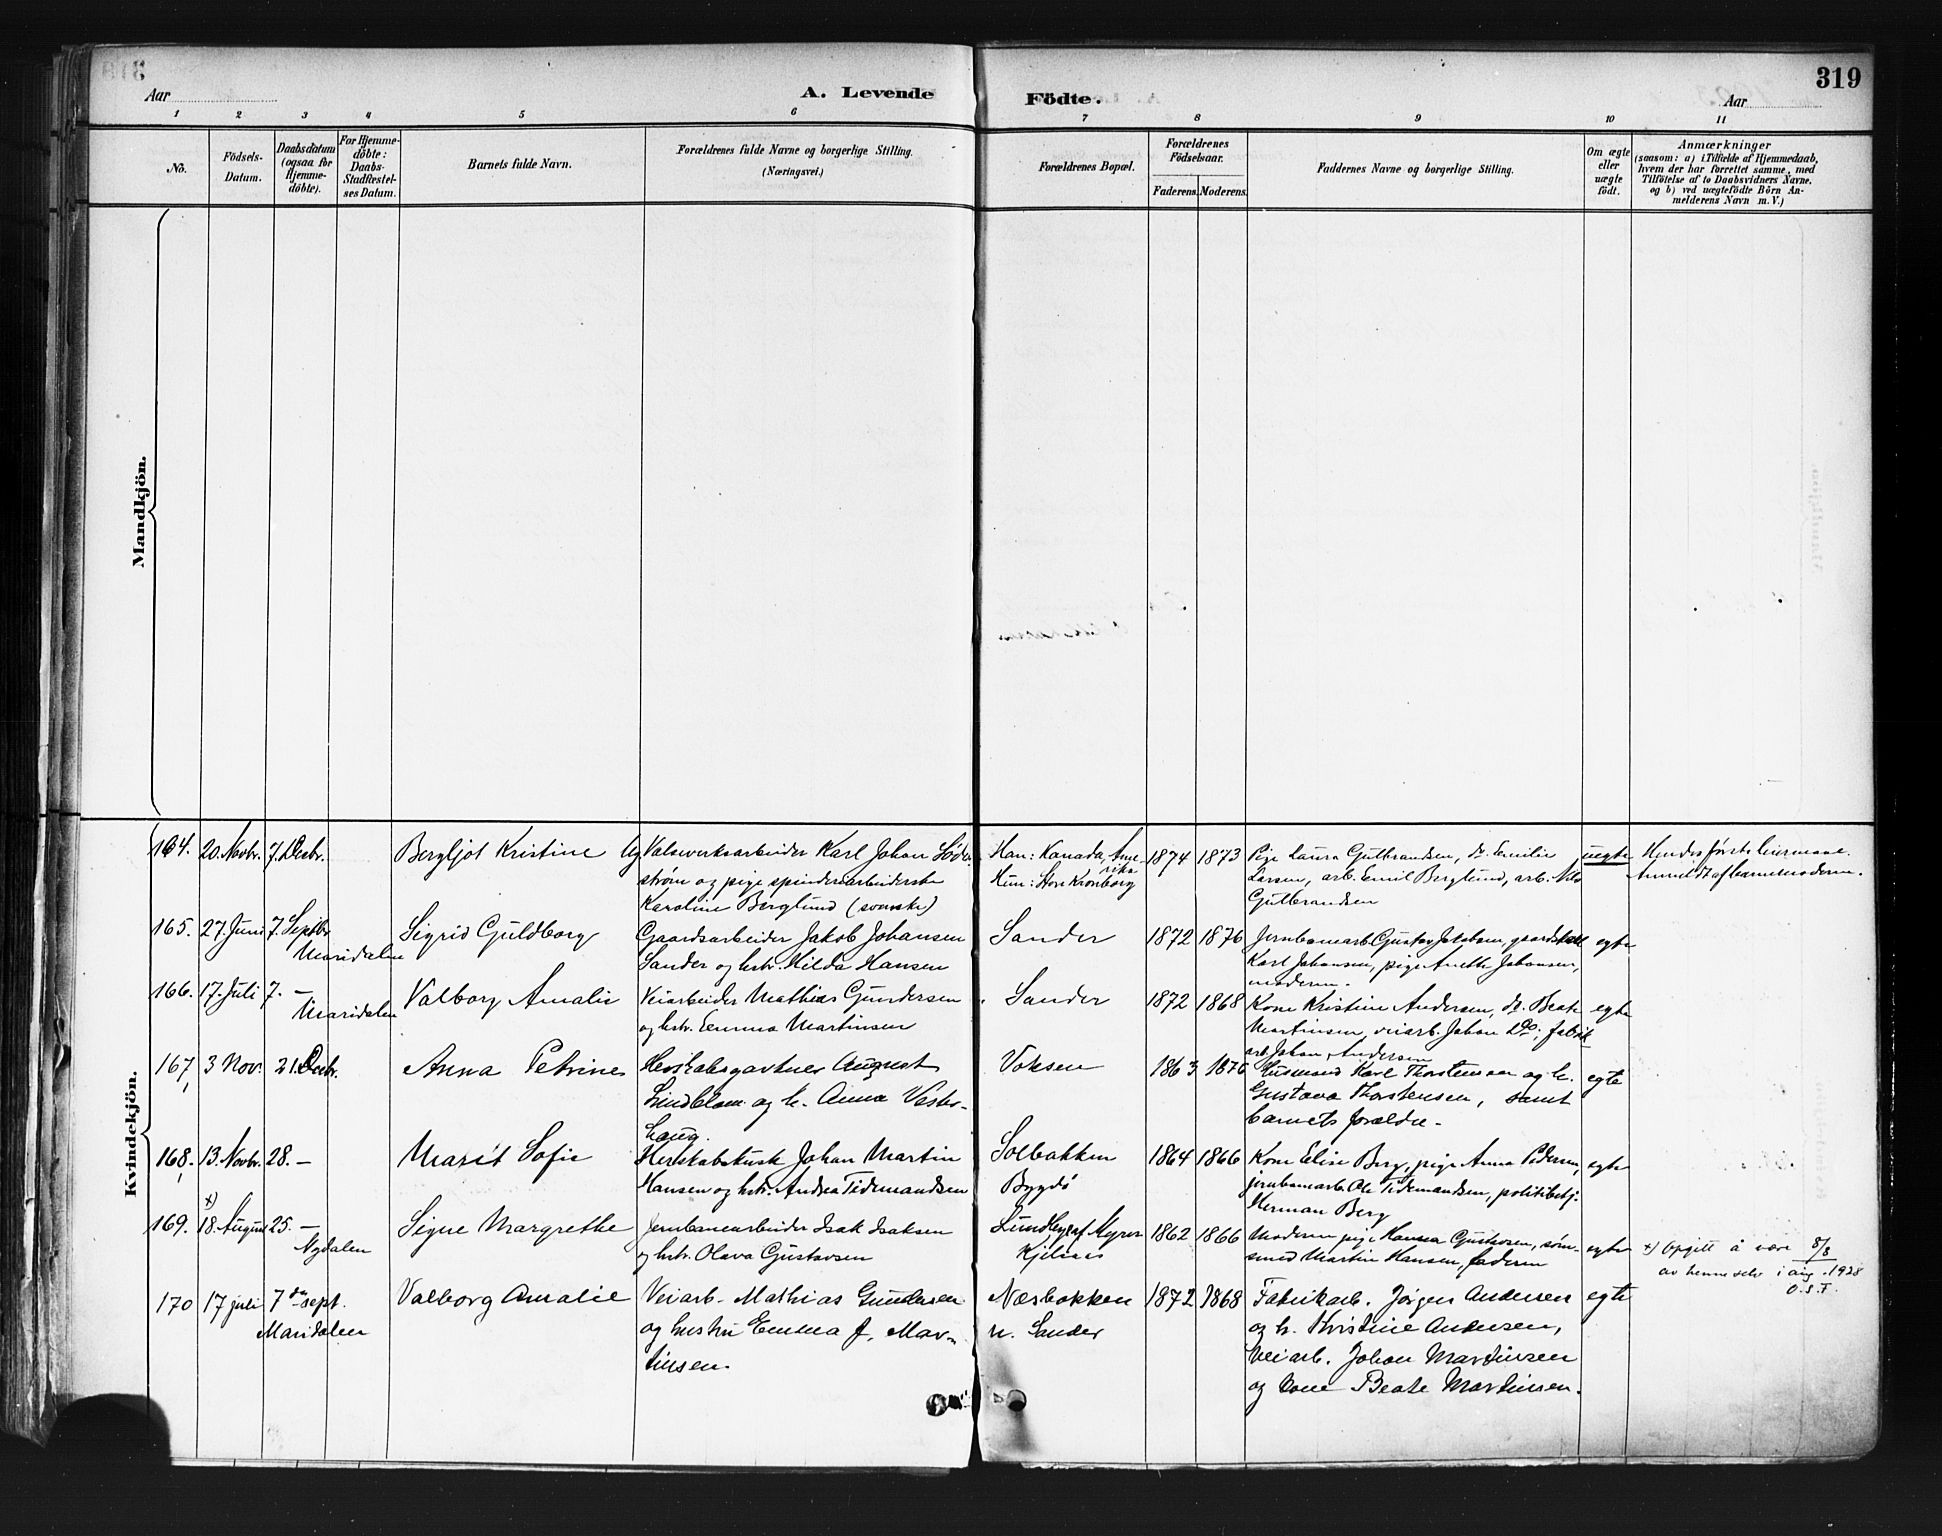 319
Aar
A. Levende
Födte.
Aar
1 2 3 4 5 6 7 8 9 10 11
No.
Födsels-
Datum.
Daabsdatum
(ogsaa for
Hjemme-
döbte).
For Hjemme-
döbte:
Daabs-
Stadfæstel-
ses Datum.
Barnets fulde Navn.
Forældrenes fulde Navne og borgerlige Stilling.
(Næringsvei.)
Forældrenes Bopæl.
Forældrenes
Födselsaar.
Faderens. Moderens.
Faddernes Navne og borgerlige Stilling.
Om ægte
eller
uægte
födt.
Anmærkninger
(saasom: a) i Tilfælde af Hjemmedaab,
hvem der har forrettet samme, med
Tilföielse af to Daabsvidners Navne,
og b) ved uægtefödte Börn An-
melderens Navn m. V.)
Mandkjön.
Kvindekjön.
164. 20. Novbr. 7. Decbr. Bergljot Kristine
Valseverksarbeider Karl Johan Söder-
ström og pige spinderiarbeiderske
Karoline Berglund (svenske)
Han: Kanada, Ame-
rika
Hun: Store Kronborg
1874 1873
Pige Laura Gulbrandsen, do. Emilie
Larsen, arb. Emil Berglund, arb. Nils
Gulbrandsen
uegte
Hendes første leiermaal.
Anmeldt af barnemoderen.
165. 27. Juni 7. Septbr.
Maridalen
Sigrid Guldborg
Gaardsarbeider Jakob Johansen
Sander og hstr. Hilda Hansen
Sander
1872 1876
Jernbanearb. Gustav Jakobsen, gaardskarl
Karl Johansen, pige Anette Johansen,
moderen.
egte
166. 17. Juli 7. —
Maridalen
Valborg Amalie
Veiarbeider Mathias Gundersen
og hstr. Emma Martinsen
Sander
1872 1868
Kone Kristine Andersen, do. Beate
Martinsen, veiarb. Johan do., fabrik
arb. Johan Andersen
egte
167, 3 Nov. 21. Decbr. Anna Petrine
Herskabsgartner August
Lindblom og h. Anna Vester-
haug.
Voksen
1863 1876
Husmand Karl Thorstensen og h.
Gustava Thorstensen, samt
barnets forældre.
egte
168, 13. Novbr. 28. — Marit Sofie
Herskabskusk Johan Martin
Hansen og hstr. Andrea Tidemandsen
Solbakken
Bygdö
1864 1866
Kone Elise Berg, pige Anna Pedersen,
jernbanearb. Ole Tidemandsen, politibetj.
Herman Berg
egte
x)
169. 18. August 25. —
Nydalen
Signe Margrethe
Jernbanearbeider Isak Isaksen
og hstr. Olava Gustavsen
Kjelsaas
1862 1866
Moderen, pige Hanna Gustavsen, søm-
smed Martin Hansen, faderen
egte
x) Opgitt å være 8/8
av henne selv i aug. 1928
O.S.F.
170 17 juli 7de sept.
Maridalen
Valborg Amalie
Veiarb. Mathias Gundersen
og hustru Emma f. Mar-
tinsen.
Næsbakken
u. Sander
1872 1868
Fabrikarb. Jörgen Andersen
og h. Kristine Andersen,
Veiarb. Johan Martinsen
og kone Beate Martinsen.
egte